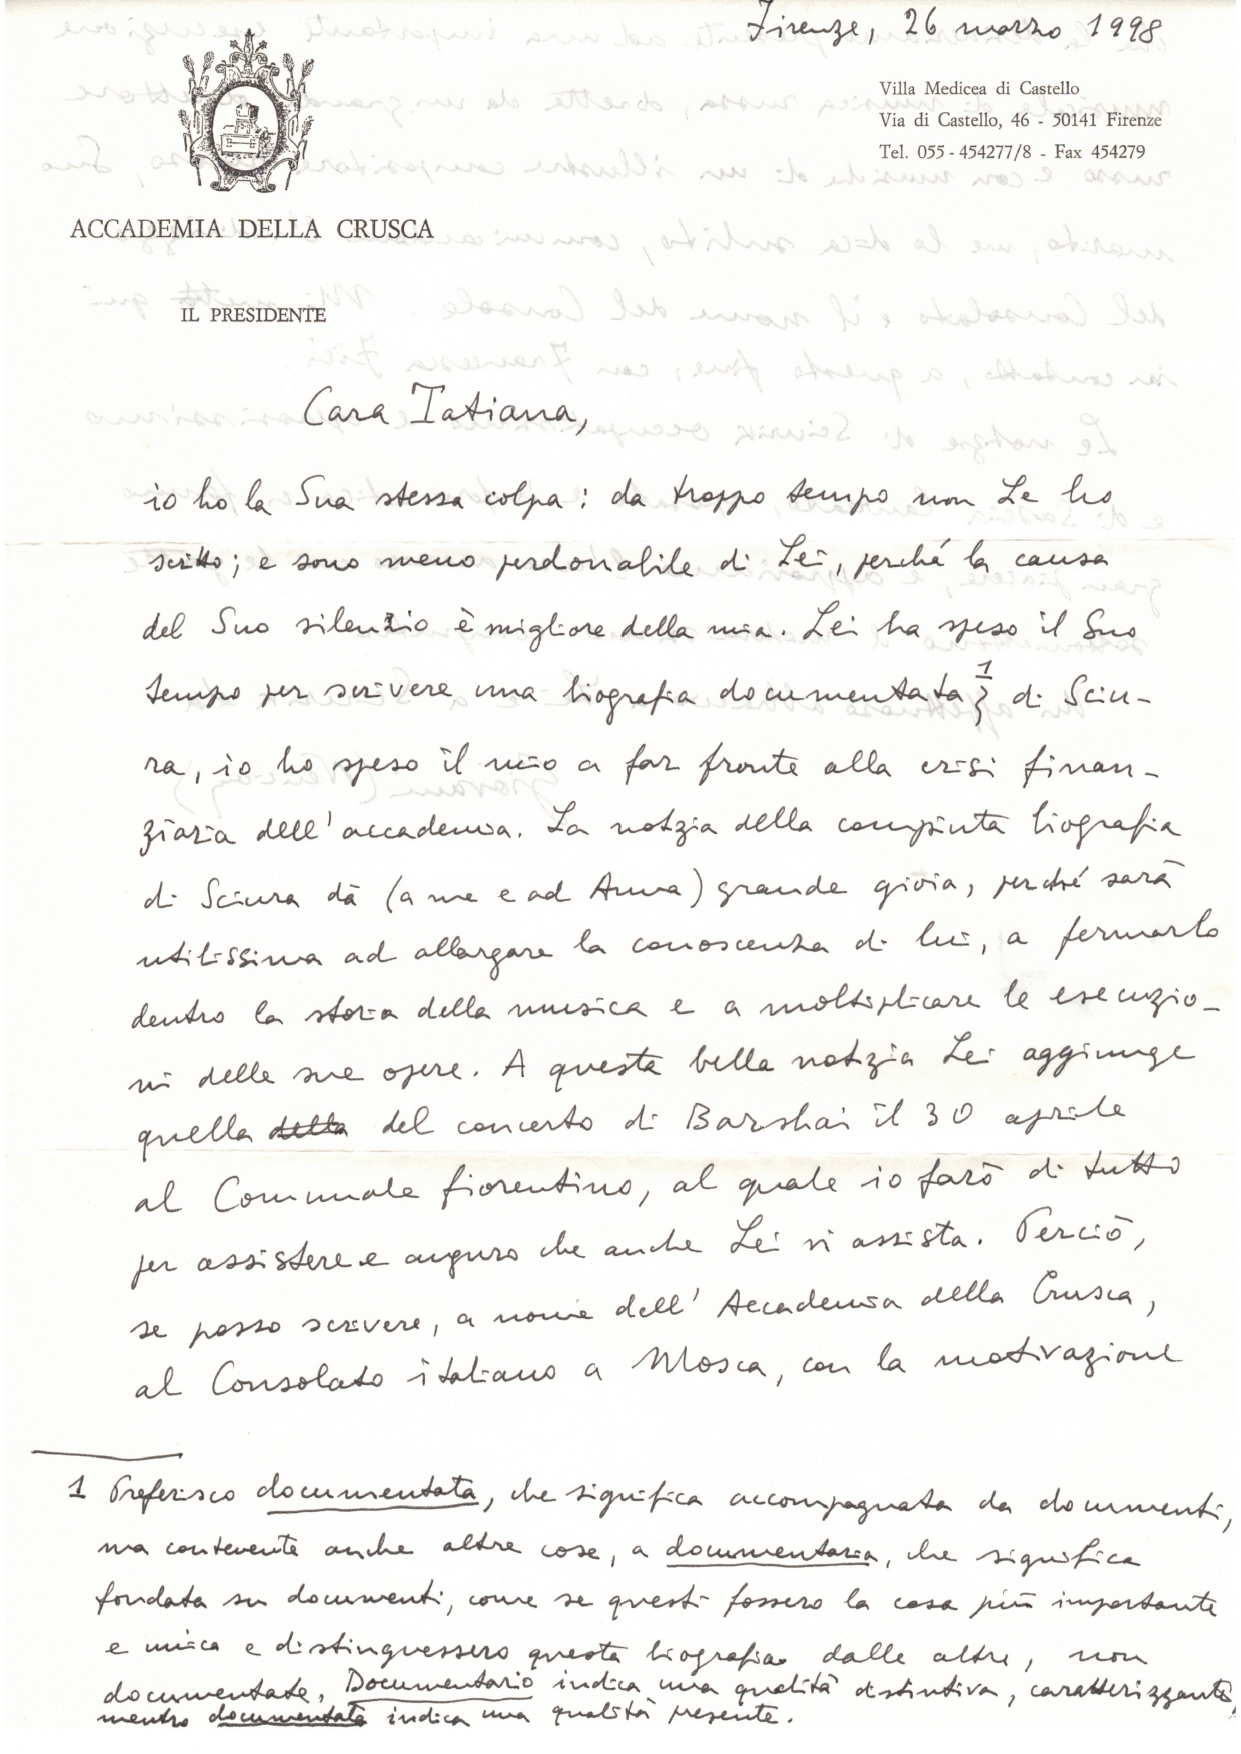 Firenze, 26 marzo 1998
Villa Medicea di Castello
Via di Castello, 46 - 50141 Firenze
Tel. 055 - 454277/8 - Fax 454279
ACCADEMIA DELLA CRUSCA
IL PRESIDENTE
Cara Tatiana,
io ho la Sua stessa colpa: da troppo tempo non Le ho
scritto; e sono meno perdonabile di Lei, perché la causa
del Suo silenzio è migliore della mia. Lei ha speso il Suo
tempo per scrivere una biografia documentata 1} di Sciu-
ra, io ho speso il mio a far fronte alla crisi finan-
ziaria dell'accademia. La notizia della compiuta biografia
di Sciura dà (a me e ad Anna) grande gioia, perché sarà
utilissima ad allargare la conoscenza di lui, a fermarlo
dentro la storia della musica e a moltiplicare le esecuzio-
ni delle sue opere. A questa bella notizia Lei aggiunge
quella della del concerto di Barshai il 30 aprile
al Comunale fiorentino, al quale io farò di tutto
per assistere e auguro che anche Lei vi assista. Perciò,
se posso scrivere, a nome dell'Accademia della Crusca,
al Consolato italiano a Mosca, con la motivazione
1 Preferisco documentata, che significa accompagnata da documenti,
ma contenente anche altre cose, a documentaria, che significa
fondata su documenti, come se questi fossero la cosa più importante
e unica e distinguessero questa biografia dalle altre, non
documentate. Documentario indica una qualità distintiva, caratterizzante,
mentre documentata indica una qualità presente.